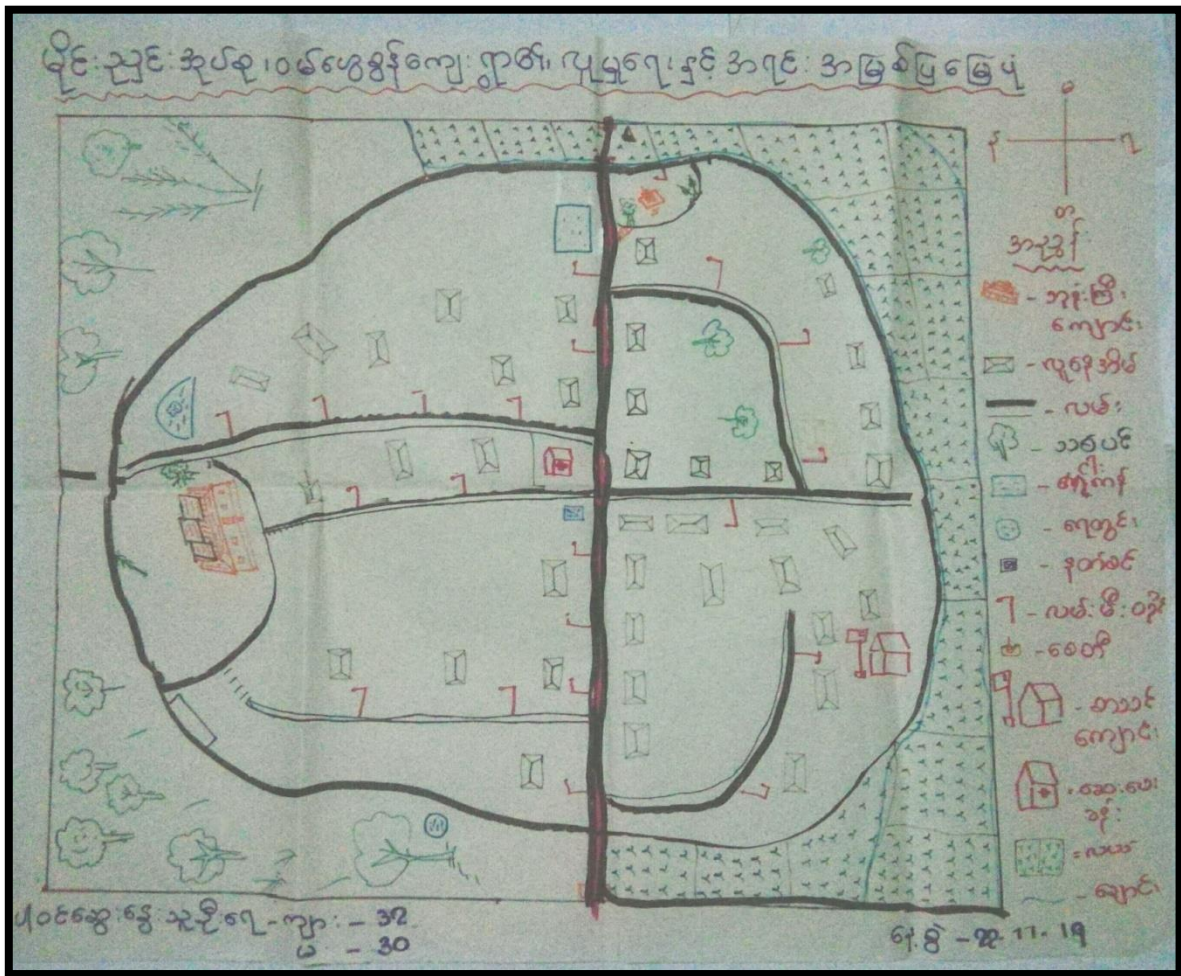 မိုင်းညှင်းအုပ်စု၊ဝမ်ဟွေခွန်ကျေးရွာ၏ လူမှုရေးနှင့်အရင်းအမြစ်ပြမြေပုံ
န
တ
အညွှန်း
- ဘုန်းကြီး
ကျောင်း
- လူနေအိမ်
- လမ်း
- သစ်ပင်
- ရေကန်
- ရေတွင်း
- နတ်စင်
- လမ်းမီးတိုင်
- စေတီ
- စာသင်
ကျောင်း
- ဆေးပေး
ခန်း
- လယ်
- ချောင်း
ပါဝင်ဆွေးနွေးသူဦးရေ - ကျား - 32
မ - 30